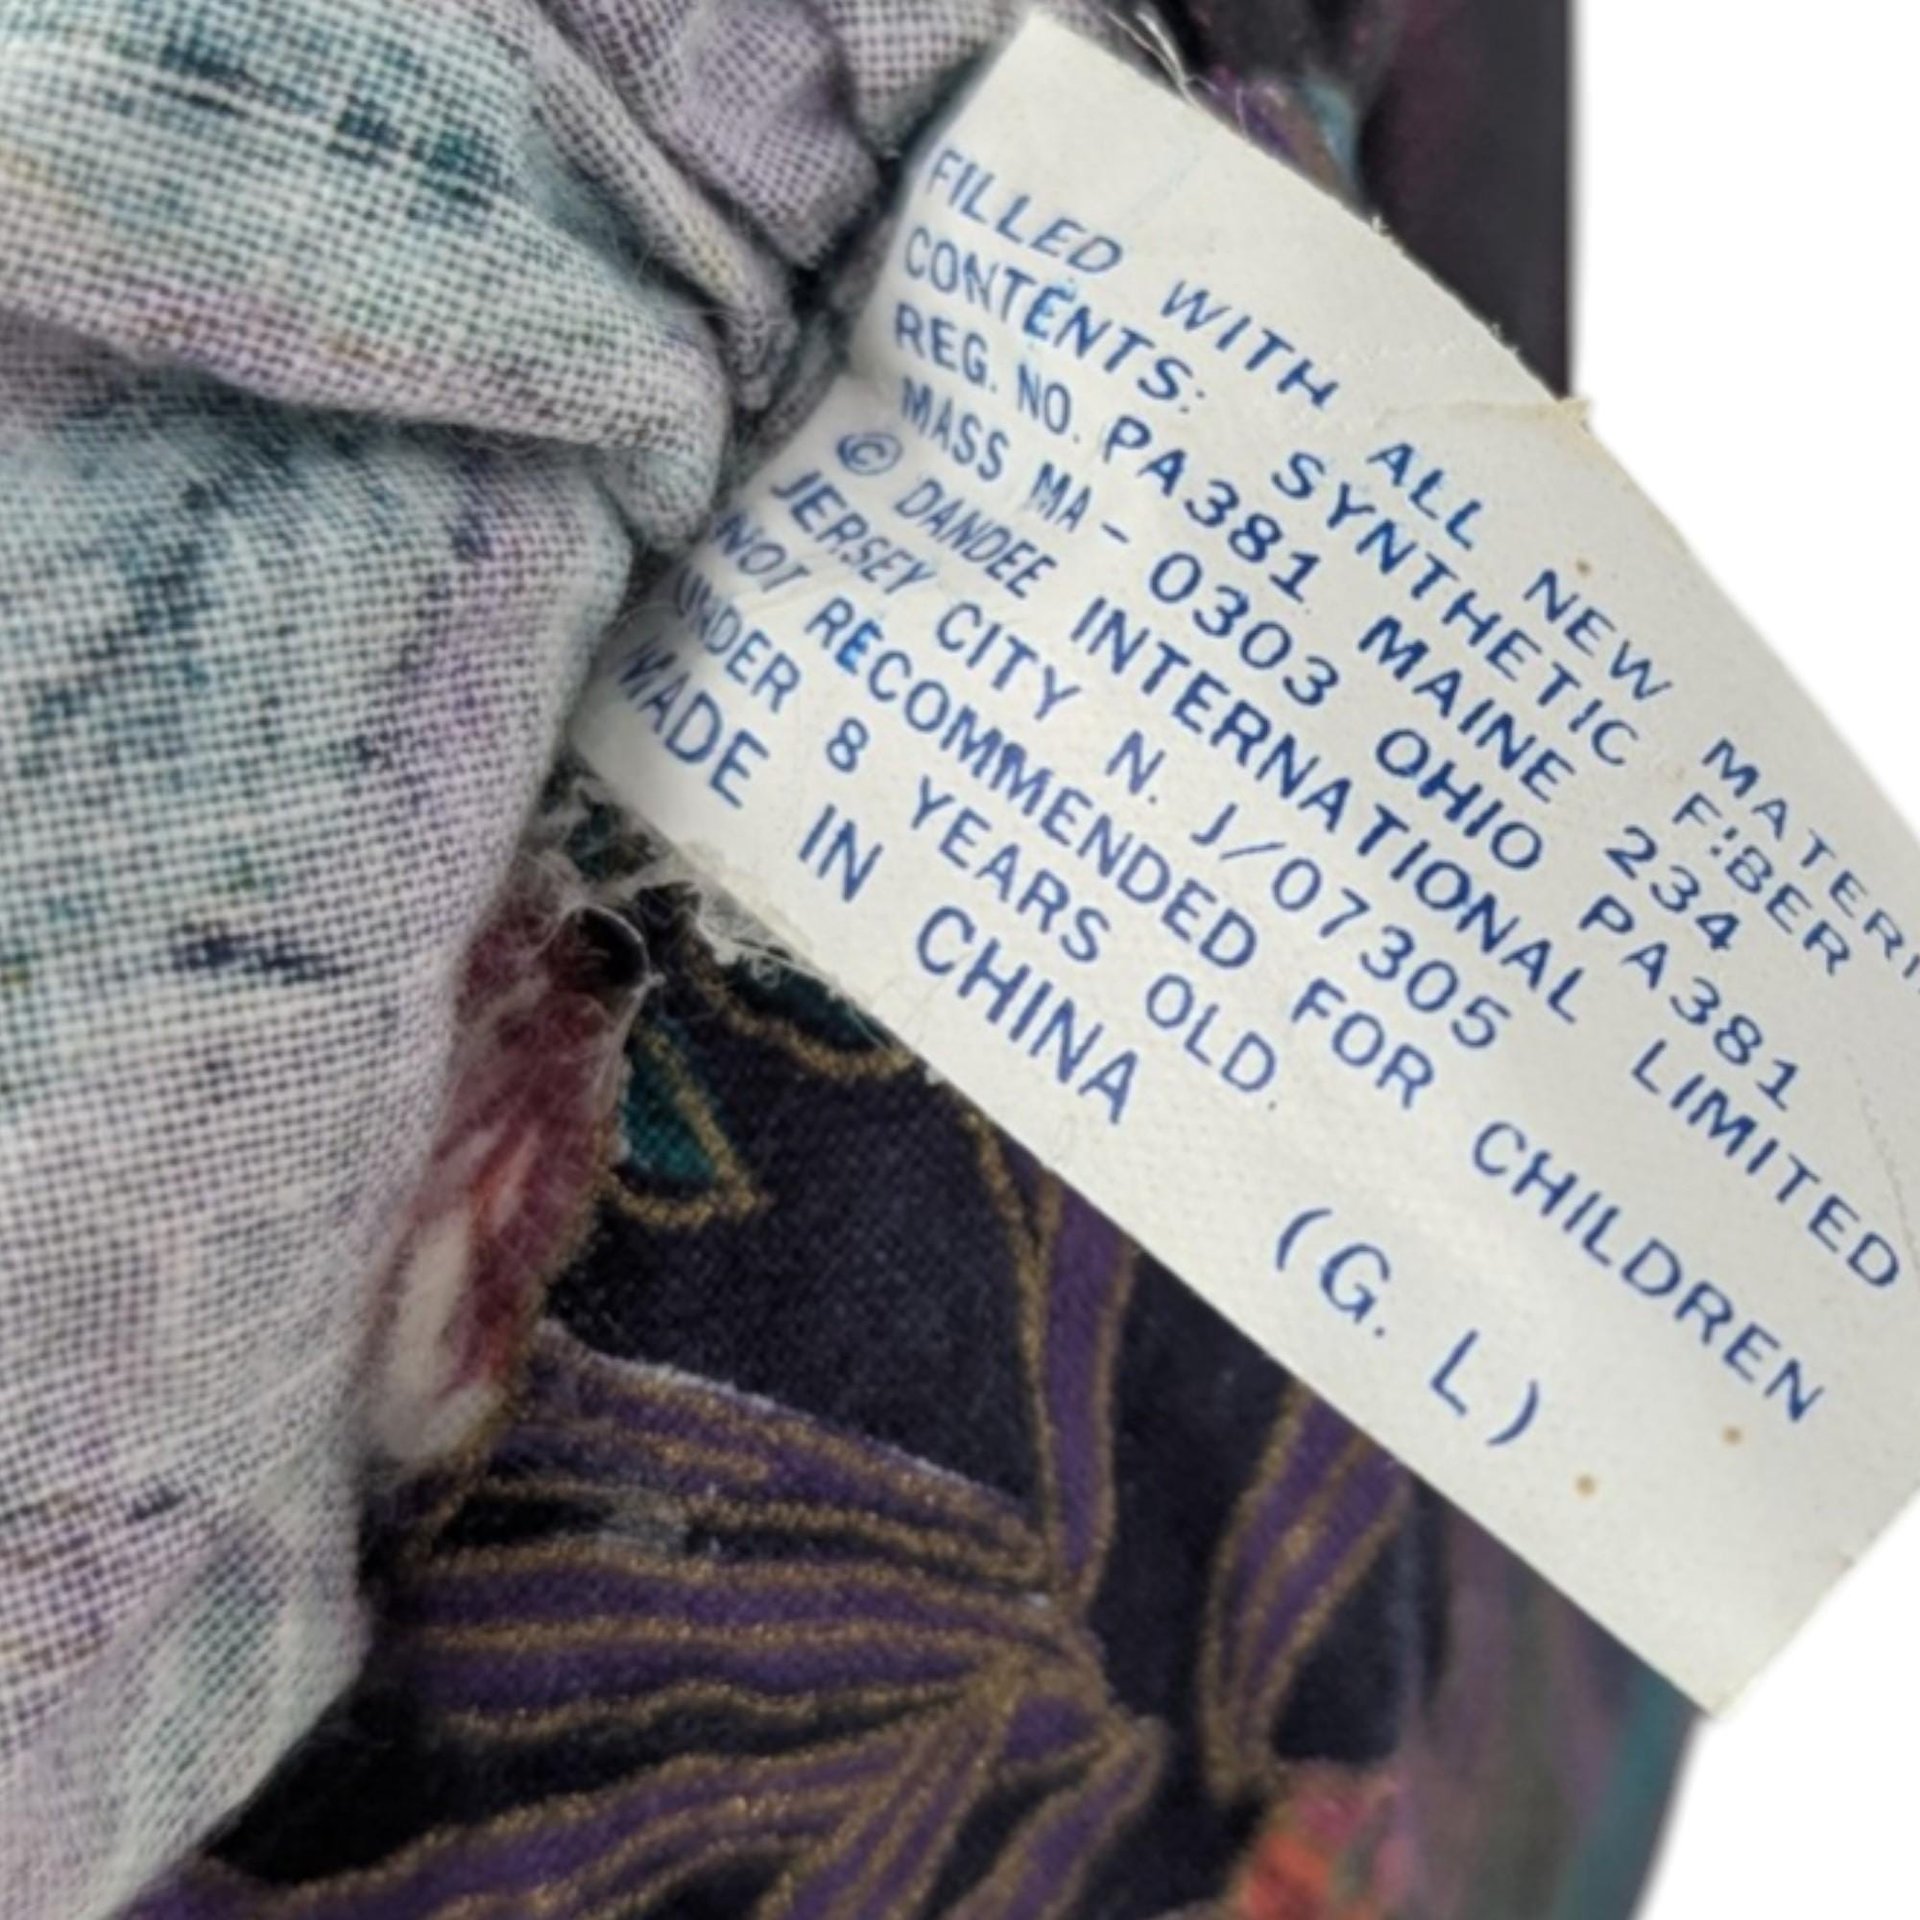 FILLED WITH ALL NEW
CONTENTS: SYNTHETIC FIBER
REG. NO. PA381 MAINE 234
MASS MA - 0303 OHIO PA381
© DANDEE INTERNATIONAL LIMITED
JERSEY CITY N. J/07305
NOT RECOMMENDED FOR CHILDREN
UNDER 8 YEARS OLD.
MADE IN CHINA (G. L)